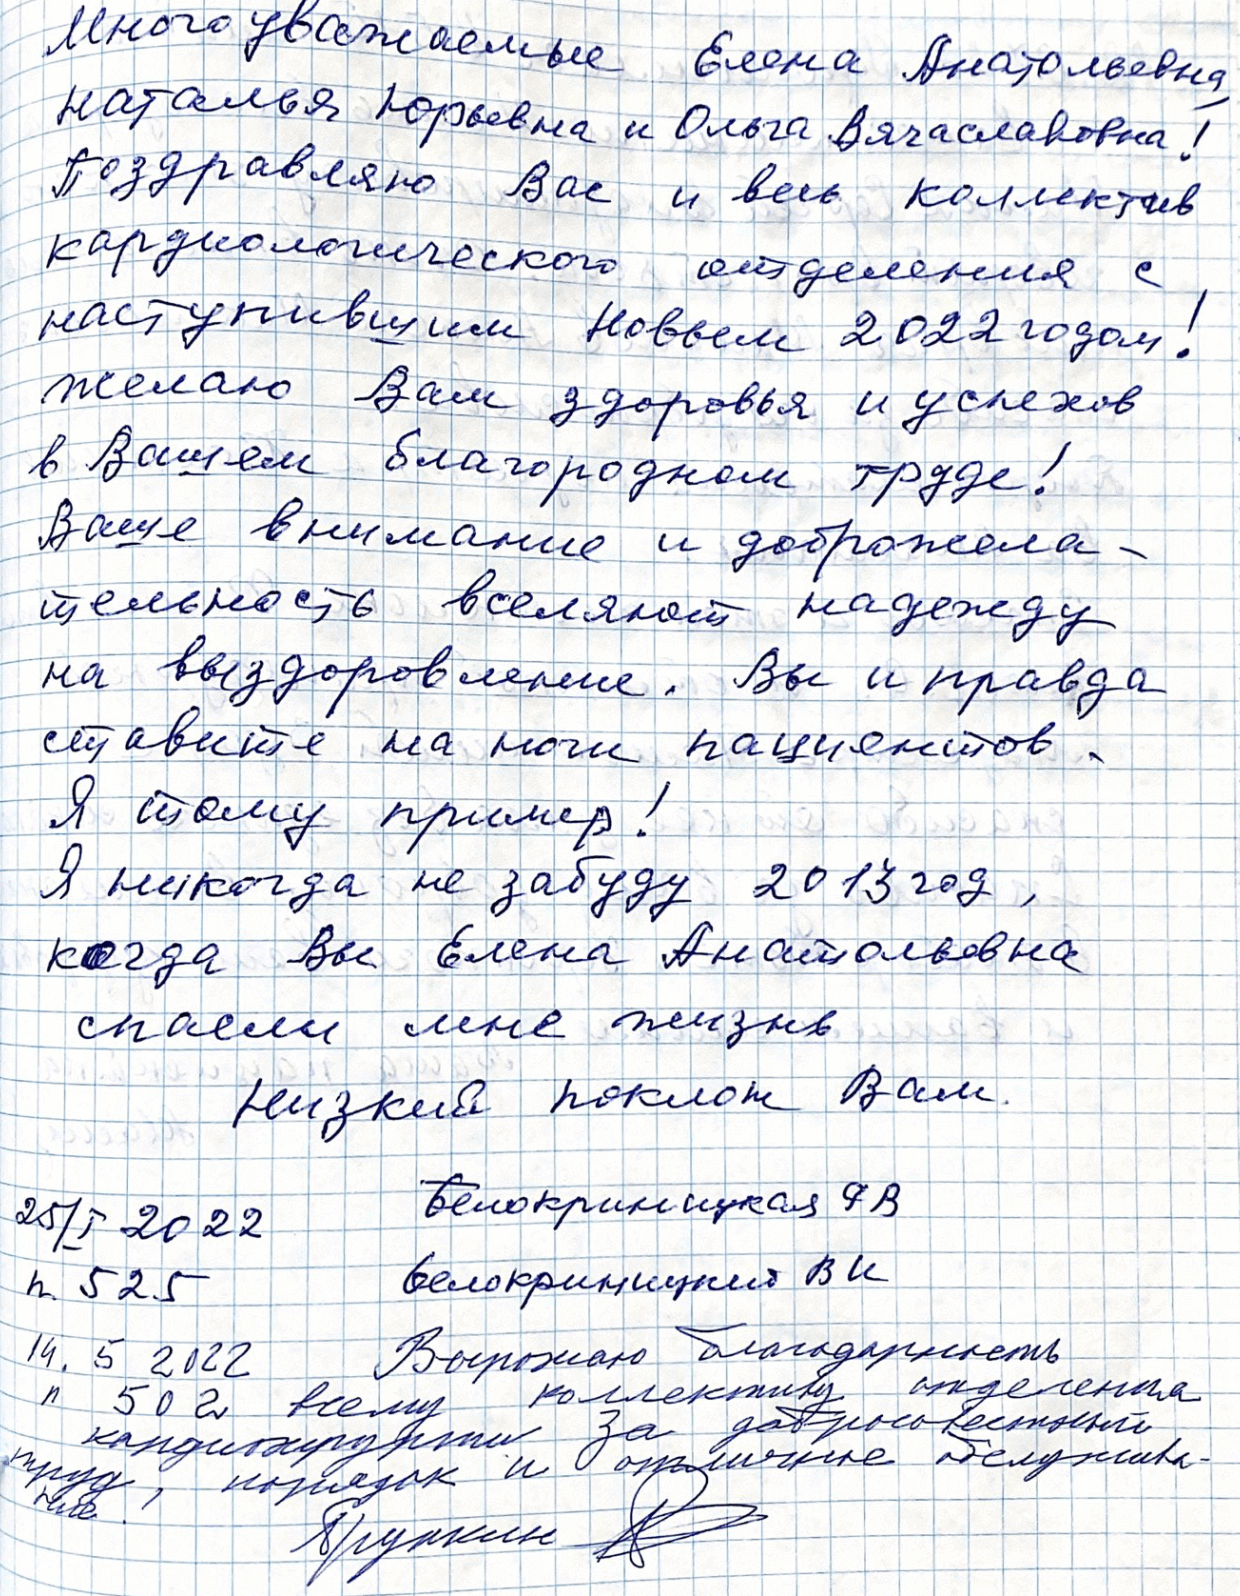 Многоуважаемые Елена Анатольевна,
Наталья Юрьевна и Ольга Вячаславовна!
Поздравляю Вас и весь коллектив
кардиологического отделения с
наступившим Новым 2022 годом!
Желаю Вам здоровья и успехов
в Вашем благородном труде!
Ваше внимание и доброжела-
тельность вселяют надежду
на выздоровление. Вы и правда
ставите на ноги пациентов.
Я тому пример!
Я никогда не забуду 2013 год,
когда Вы Елена Анатольевна
спасли мне жизнь
Низкий поклон Вам.
25/I 2022 Белокриницкая Ф В
п. 525 Белокриницкий В И
14. 5 2022 Выражаю благодарность
п 502 всему коллективу отделения
кардиохирургии за добросовестный
труд, порядок и отличное обслужива-
ние!